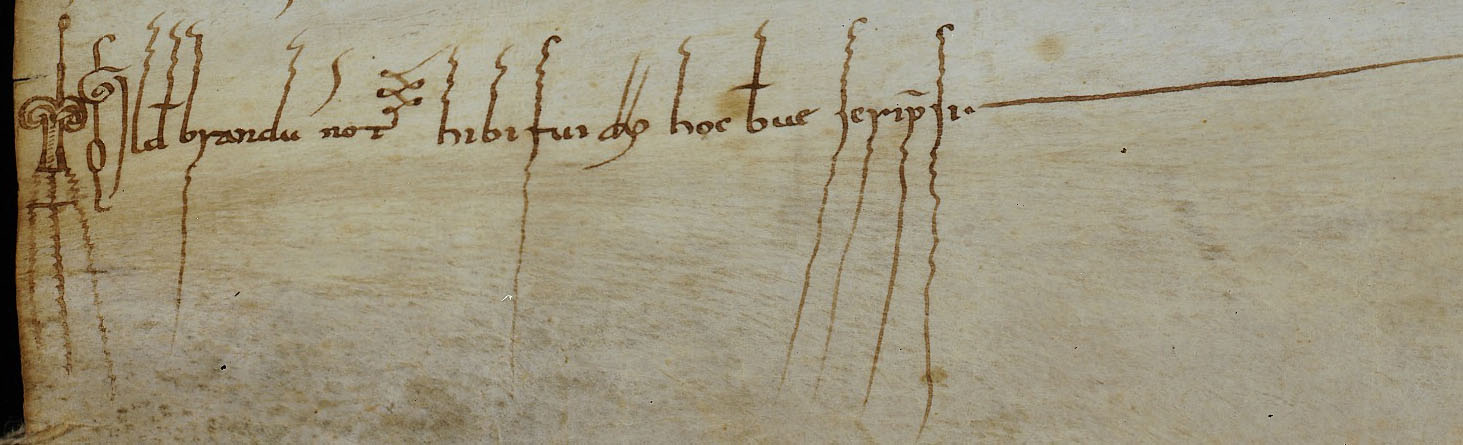 Ildebrandu not hibi fui & hoc breue scripsi